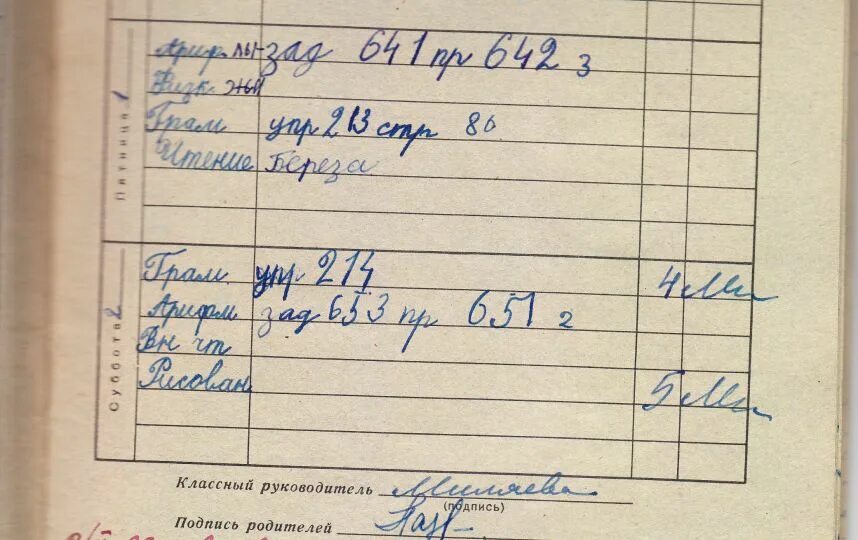 Пятница 1
Ариф. зад 641 пр 642 з
Физк.
Грам упр 213 стр 80
Чтение Береза
Суббота 2
Грам. упр. 214 4 Ми
Арифм зад 653 пр 651 г
Вн чт
Рисован 5 Ми
Классный руководитель Миляева
(подпись)
Подпись родителей